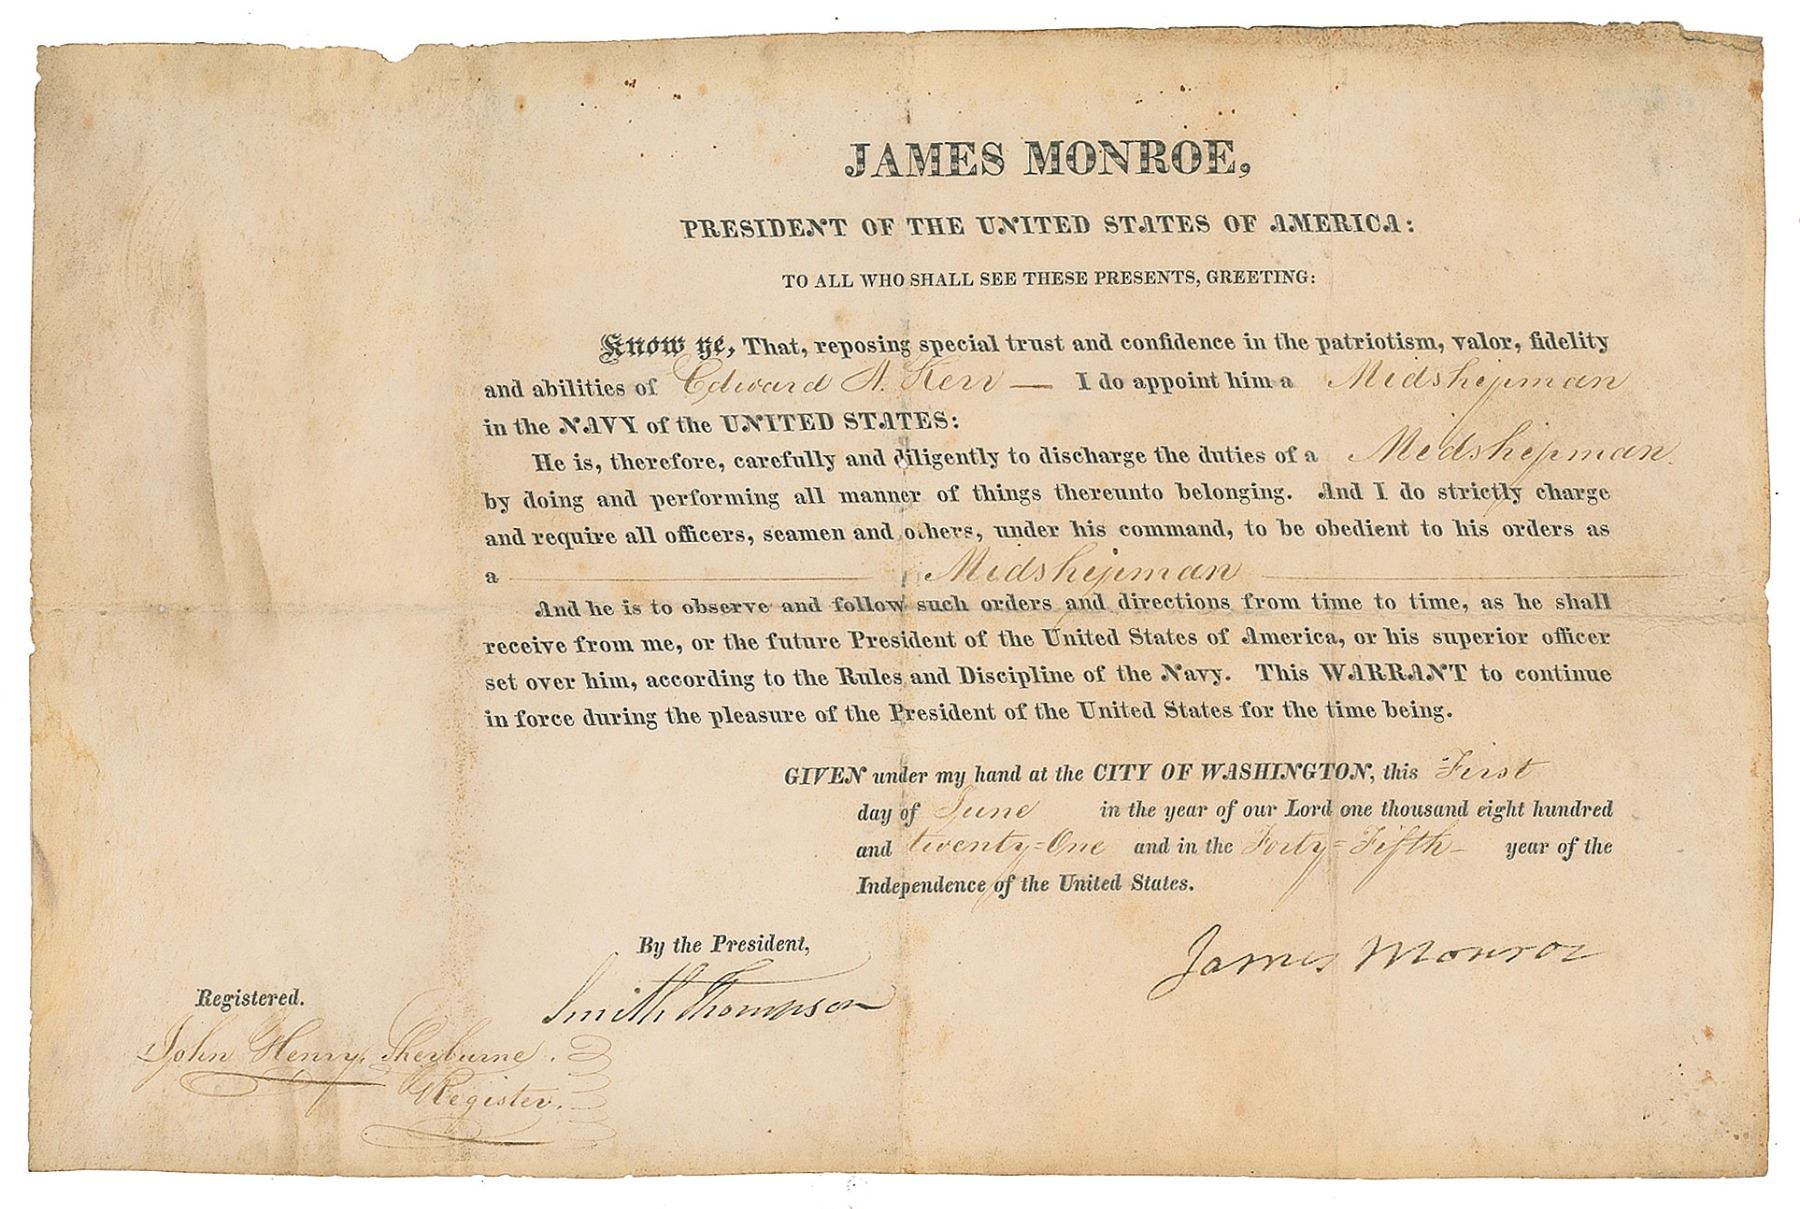 JAMES MONROE,
PRESIDENT OF THE UNITED STATES OF AMERICA:
TO ALL WHO SHALL SEE THESE PRESENTS, GREETING:
Know ye, That, reposing special trust and confidence in the patriotism, valor, fidelity
and abilities of Edward A. Kerr — I do appoint him a Midshipman
in the NAVY of the UNITED STATES:
He is, therefore, carefully and diligently to discharge the duties of a Midshipman
by doing and performing all manner of things thereunto belonging. And I do strictly charge
and require all officers, seamen and others, under his command, to be obedient to his orders as
a Midshipman
And he is to observe and follow such orders and directions from time to time, as he shall
receive from me, or the future President of the United States of America, or his superior officer
set over him, according to the Rules and Discipline of the Navy. This WARRANT to continue
in force during the pleasure of the President of the United States for the time being.
GIVEN under my hand at the CITY OF WASHINGTON, this First
day of June in the year of our Lord one thousand eight hundred
and twenty=One and in the Forty=Fifth year of the
Independence of the United States.
James Monroe
By the President,
Smith Thompson
Registered.
John Henry Sherburne.
Register.